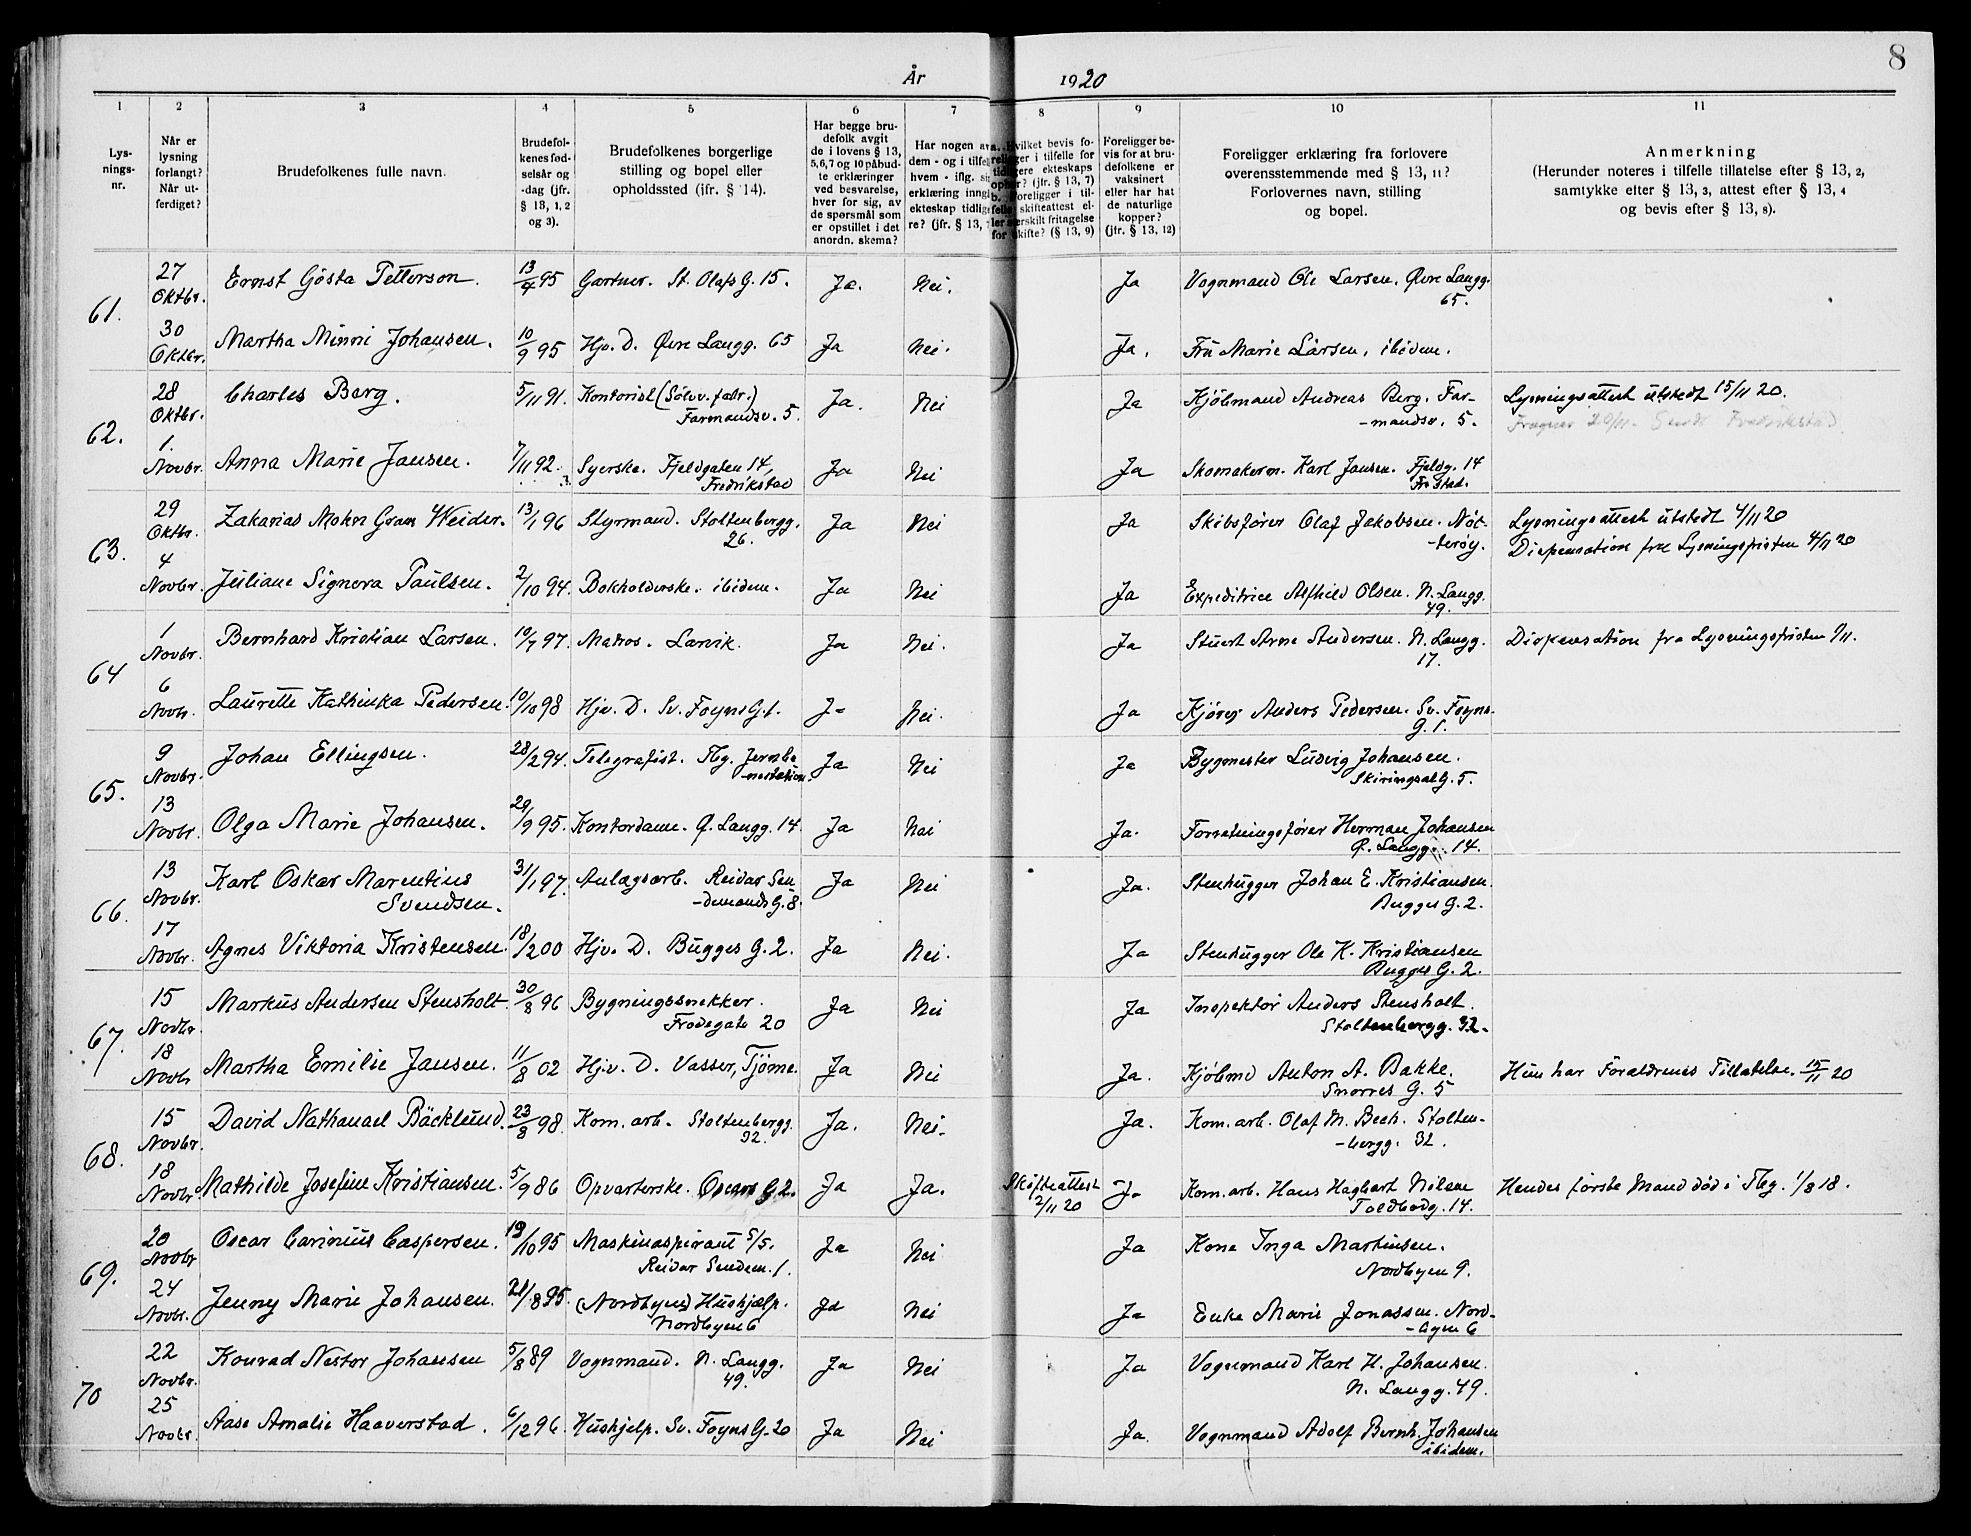 8
År 1920
1 2 3 4 5 6 7 8 9 10 11
Lys-
nings-
nr.
Når er
lysning
forlangt?
Når ut-
ferdiget?
Brudefolkenes fulle navn.
Brudefol-
kenes fød-
selsår og
-dag (jfr.
§ 13, 1, 2
og 3).
Brudefolkenes borgerlige
stilling og bopel eller
opholdssted (jfr. § 14).
Har begge bru-
defolk avgit
de i lovens § 13,
5, 6, 7 og 10 påbud-
te erklæringer
ved besvarelse,
hver for sig, av
de spørsmål som
er opstillet i det
anordn. skema?
Har nogen av
dem - og i tilfel
hvem - iflg.
erklæring inng
ekteskap tidlig
re? (jfr. § 13,
Hvilket bevis fo-
ger i tilfelle for
ere ekteskaps
? (jfr. § 13, 7)
b. Foreligger i til-
skifteattest el-
særskilt fritagelse
for skifte? (§ 13, 9)
Foreligger be-
vis for at bru-
defolkene er
vaksinert
eller har hat
de naturlige
kopper?
(jfr. § 13, 12)
Foreligger erklæring fra forlovere
overensstemmende med § 13, 11?
Forlovernes navn, stilling
og bopel.
Anmerkning
(Herunder noteres i tilfelle tillatelse efter § 13, 2,
samtykke efter § 13, 3, attest efter § 13, 4
og bevis efter § 13, 8).
61. 27 Oktbr. Ernst Gösta Petterson. 13/4 95 Gartner. St. Olafs G. 15. Ja. Nei. Ja Vognmand Ole Larsen. Øvre Langg.
65.
30 Oktbr. Martha Minni Johansen. 10/9 95 Hjv. D. Øvre Langg. 65 Ja Nei. Ja. Fru Marie Larsen, ibidem.
62. 28 Oktbr. Charles Berg. 5/11 91. Kontorist (Sölvv.fabr.) Ja. Nei Ja Kjöbmand Andreas Berg. Far- Lysningsattest utstedt 15/11 20.
Farmandsv. 5. -mandsv. 5. 20/11. Sendt Fredrikstad
1. Novbr. Anna Marie Jansen. 7/11 92. Syerske. Fjeldgaten 14, Ja Nei Ja Skomakerm. Karl Jansen. Fjeldg. 14
Fredrikstad Fr.stad.
63. 29 Oktbr. Zakarias Mohn Gram Weider. 13/1 96 Styrmand. Stoltenbergg. Ja Nei Ja Skibsfører Olaf Jakobsen. Nöt- Lysningsattest utstedt 4/11 20
26. -teröy. Dispensation fra Lysningsfristen 4/11 20
4 Novbr. Juliane Signora Paulsen. 2/10 94. Bokholderske. ibidem. Ja Nei Ja Expeditrice Alfhild Olsen. N. Langg.
49.
64 1 Novbr. Bernhard Kristian Larsen. 10/7 97. Matros. Larvik. Ja Nei. Ja Stuert Arne Andersen. N. Langg. Dispensation fra Lysningsfristen
17.
6 Novbr. Laurette Kathinka Pedersen. 10/10 98 Hjv. D. Sv. Foyns G. 1. Ja Nei. Ja Kjörer Anders Pedersen. Sv. Foyns
G. 1.
65. 9 Novbr. Johan Ellingsen. 28/2 94. Telegrafist. Tbg. Jernba Ja Nei Ja Bygmester Ludvig Johansen.
-nestation. Skiringssal G. 5.
13 Novbr. Olga Marie Johansen. 29/9 95. Kontordame. Ø. Langg. 14. Ja Nei Ja. Forretningsfører Herman Johansen
Ø. Langg. 14.
66. 13 Novbr. Karl Oskar Marentius 31/1 97. Anlægsarb. Reidar Sen Ja Nei Ja. Stenhugger Johan E. Kristiansen.
Svendsen. -demands G. 8. Bugges G. 2.
17 Novbr. Agnes Viktoria Kristensen. 18/2 00 Hjv. D. Bugges G. 2. Ja Nei. Ja Stenhugger Ole K. Kristiansen
Bugges G. 2.
67. 15 Novbr. Markus Andersen Stensholt. 30/8 96 Bygningssnekker. Ja Nei Ja Inspektör Anders Stensholt.
Frodesgate 20 Stoltenbergg. 32.
18 Novbr Martha Emilie Jansen. 11/8 02 Hjv. D. Vasser, Tjöme. Ja Nei Ja. Kjöbmd Anton A. Bakke. Hun har Forældrenes Tillatelse. 15/11 20
Snorres G. 5
68. 15 Novbr. David Nathanael Bäcklund. 23/8 98. Kom. arb. Stoltenbergg. Ja. Nei. Ja. Kom. arb. Olaf M. Bech. Stolten-
32. -bergg. 32.
18 Novbr. Mathilde Josefine Kristiansen. 5/9 86 Opvarterske. Oscars G 2. Ja Ja. Skifteattest Ja Kom. arb. Hans Hagbart Nilsen Hendes förste Mand död i Tbg. 1/8 18.
2/11 20 Toldbodg. 14.
69. 20 Novbr Oscar Carinius Caspersen. 19/10 95 Maskinaspirant S/S. Ja Nei Ja Kone Inga Martinsen.
Reidar Sendem. 1. Nordbyen 9.
24 Novbr. Jenny Marie Johansen. 21/8 95. (Nordbyen) Hushjælp. Ja Nei Ja Enke Marie Jonassen. Nord-
Nordbyen 6 -byen 6
70 22 Novbr. Konrad Nestor Johansen 5/8 89 Vognmand. N. Langg. Ja Nei Ja Vognmand Karl H. Johansen.
49. N. Langg. 49.
25 Novbr. Aase Amalie Haaverstad. 6/12 96. Hushjelp. Sv. Foyns G. 20 Ja Nei Ja. Vognmand Adolf Bernh. Johansen
ibidem.